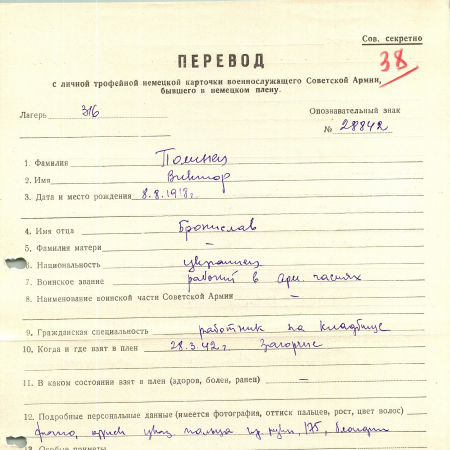 Сов. секретно
38
ПЕРЕВОД
с личной трофейной немецкой карточки военнослужащего Советской Армии,
бывшего в немецком плену.
Лагерь 316
Опознавательный знак
№ 28842
1. Фамилия
2. Имя Виктор
3. Дата и место рождения 8.8.1918г.
4. Имя отца Бронислав
5. Фамилия матери –
6. Национальность украинец
7. Воинское звание рабочий в арм. частях
8. Наименование воинской части Советской Армии –
9. Гражданская специальность работник на кладбище
10. Когда и где взят в плен 28.3.42г.
11. В каком состоянии взят в плен (здоров, болен, ранен) —
12. Подробные персональные данные (имеется фотография, оттиск пальцев, рост, цвет волос)
фото, пальца 175, блондин
13. Особые приметы